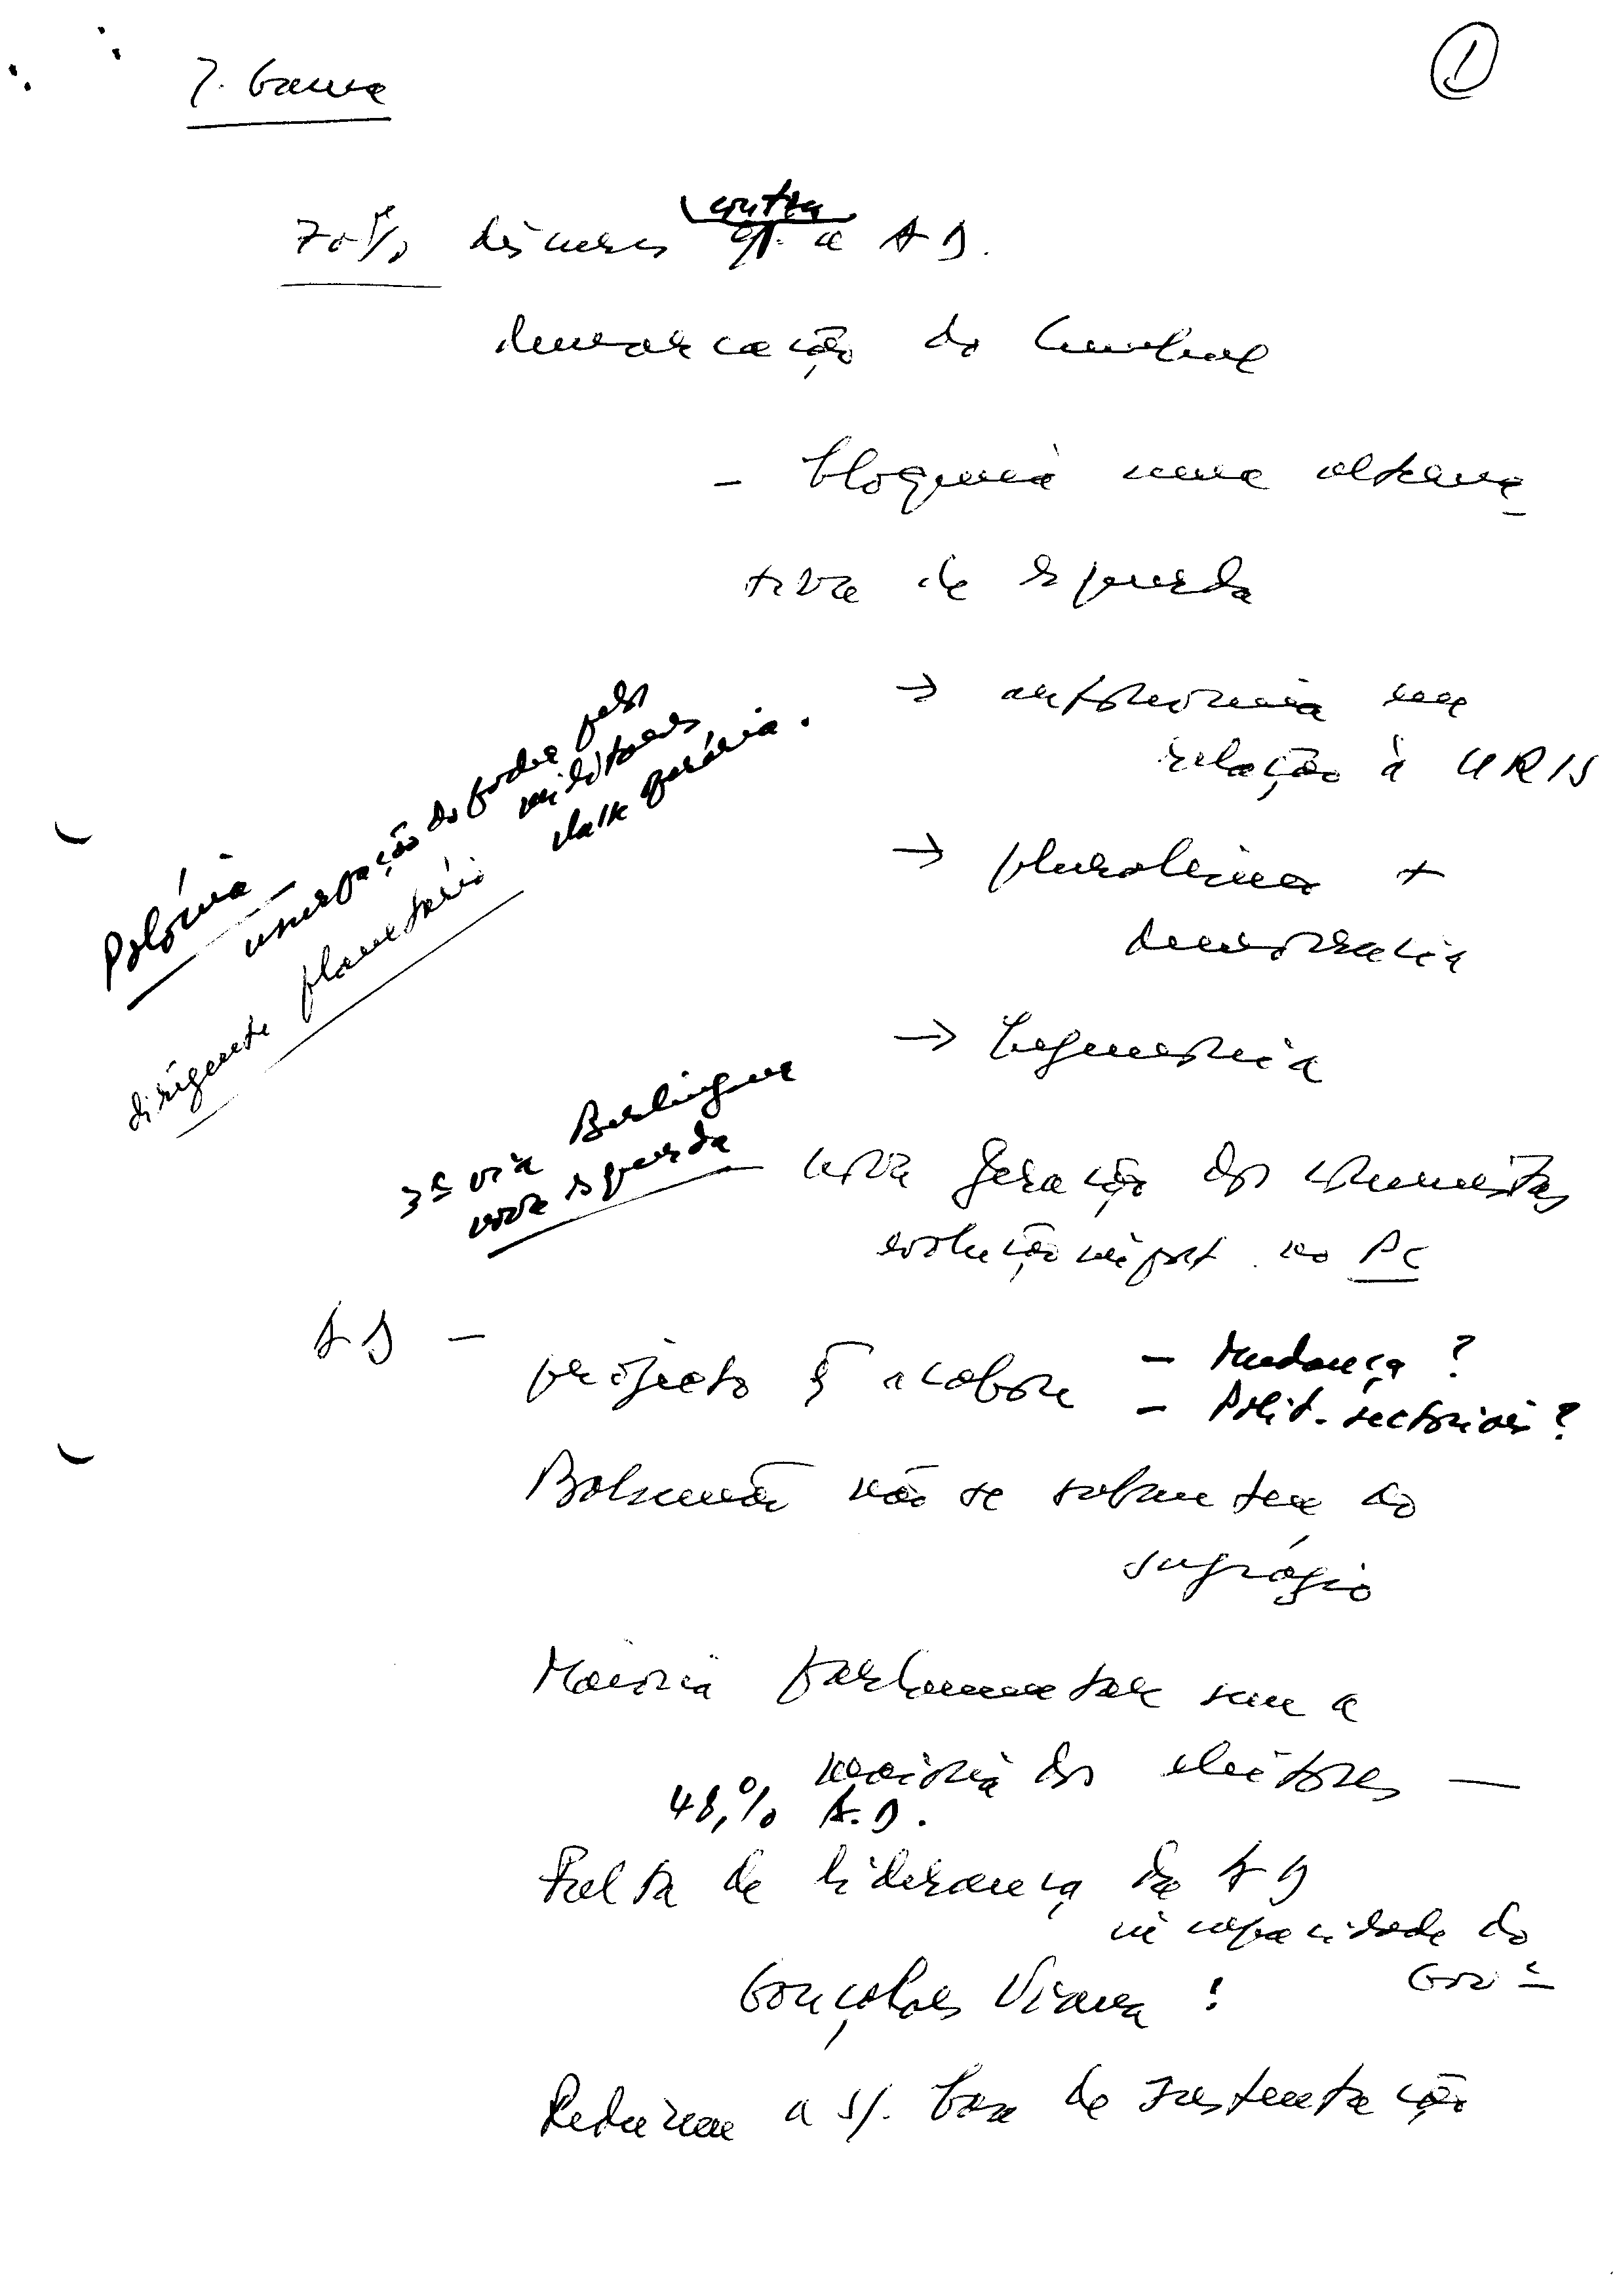 J. Gama
1
70% discurso contra a AD.
demarcação do Cunhal
- bloqueia uma alterna
tiva de esquerda
→ autonomia em
relação à URSS
→ pluralismo +
democracia
→ hegemonia
Polónia - usurpação do poder pelos
militares
dirigente planetário classe operária.
3ª via Berlinguer
nova esquerda
nova geração dos comunistas
evolução import. no PC
AD -
projecto q̃ acabou
- Mudança?
- Polit. sectoriais?
Balsemão não se submeteu ao
sufrágio
Maioria parlamentar sem a
maioria dos eleitores —
48,% A.D.
Falta de liderança da AD
incapacidade do
Govº
Gonçalves Viana!
Reduziram a s/. base de sustentação